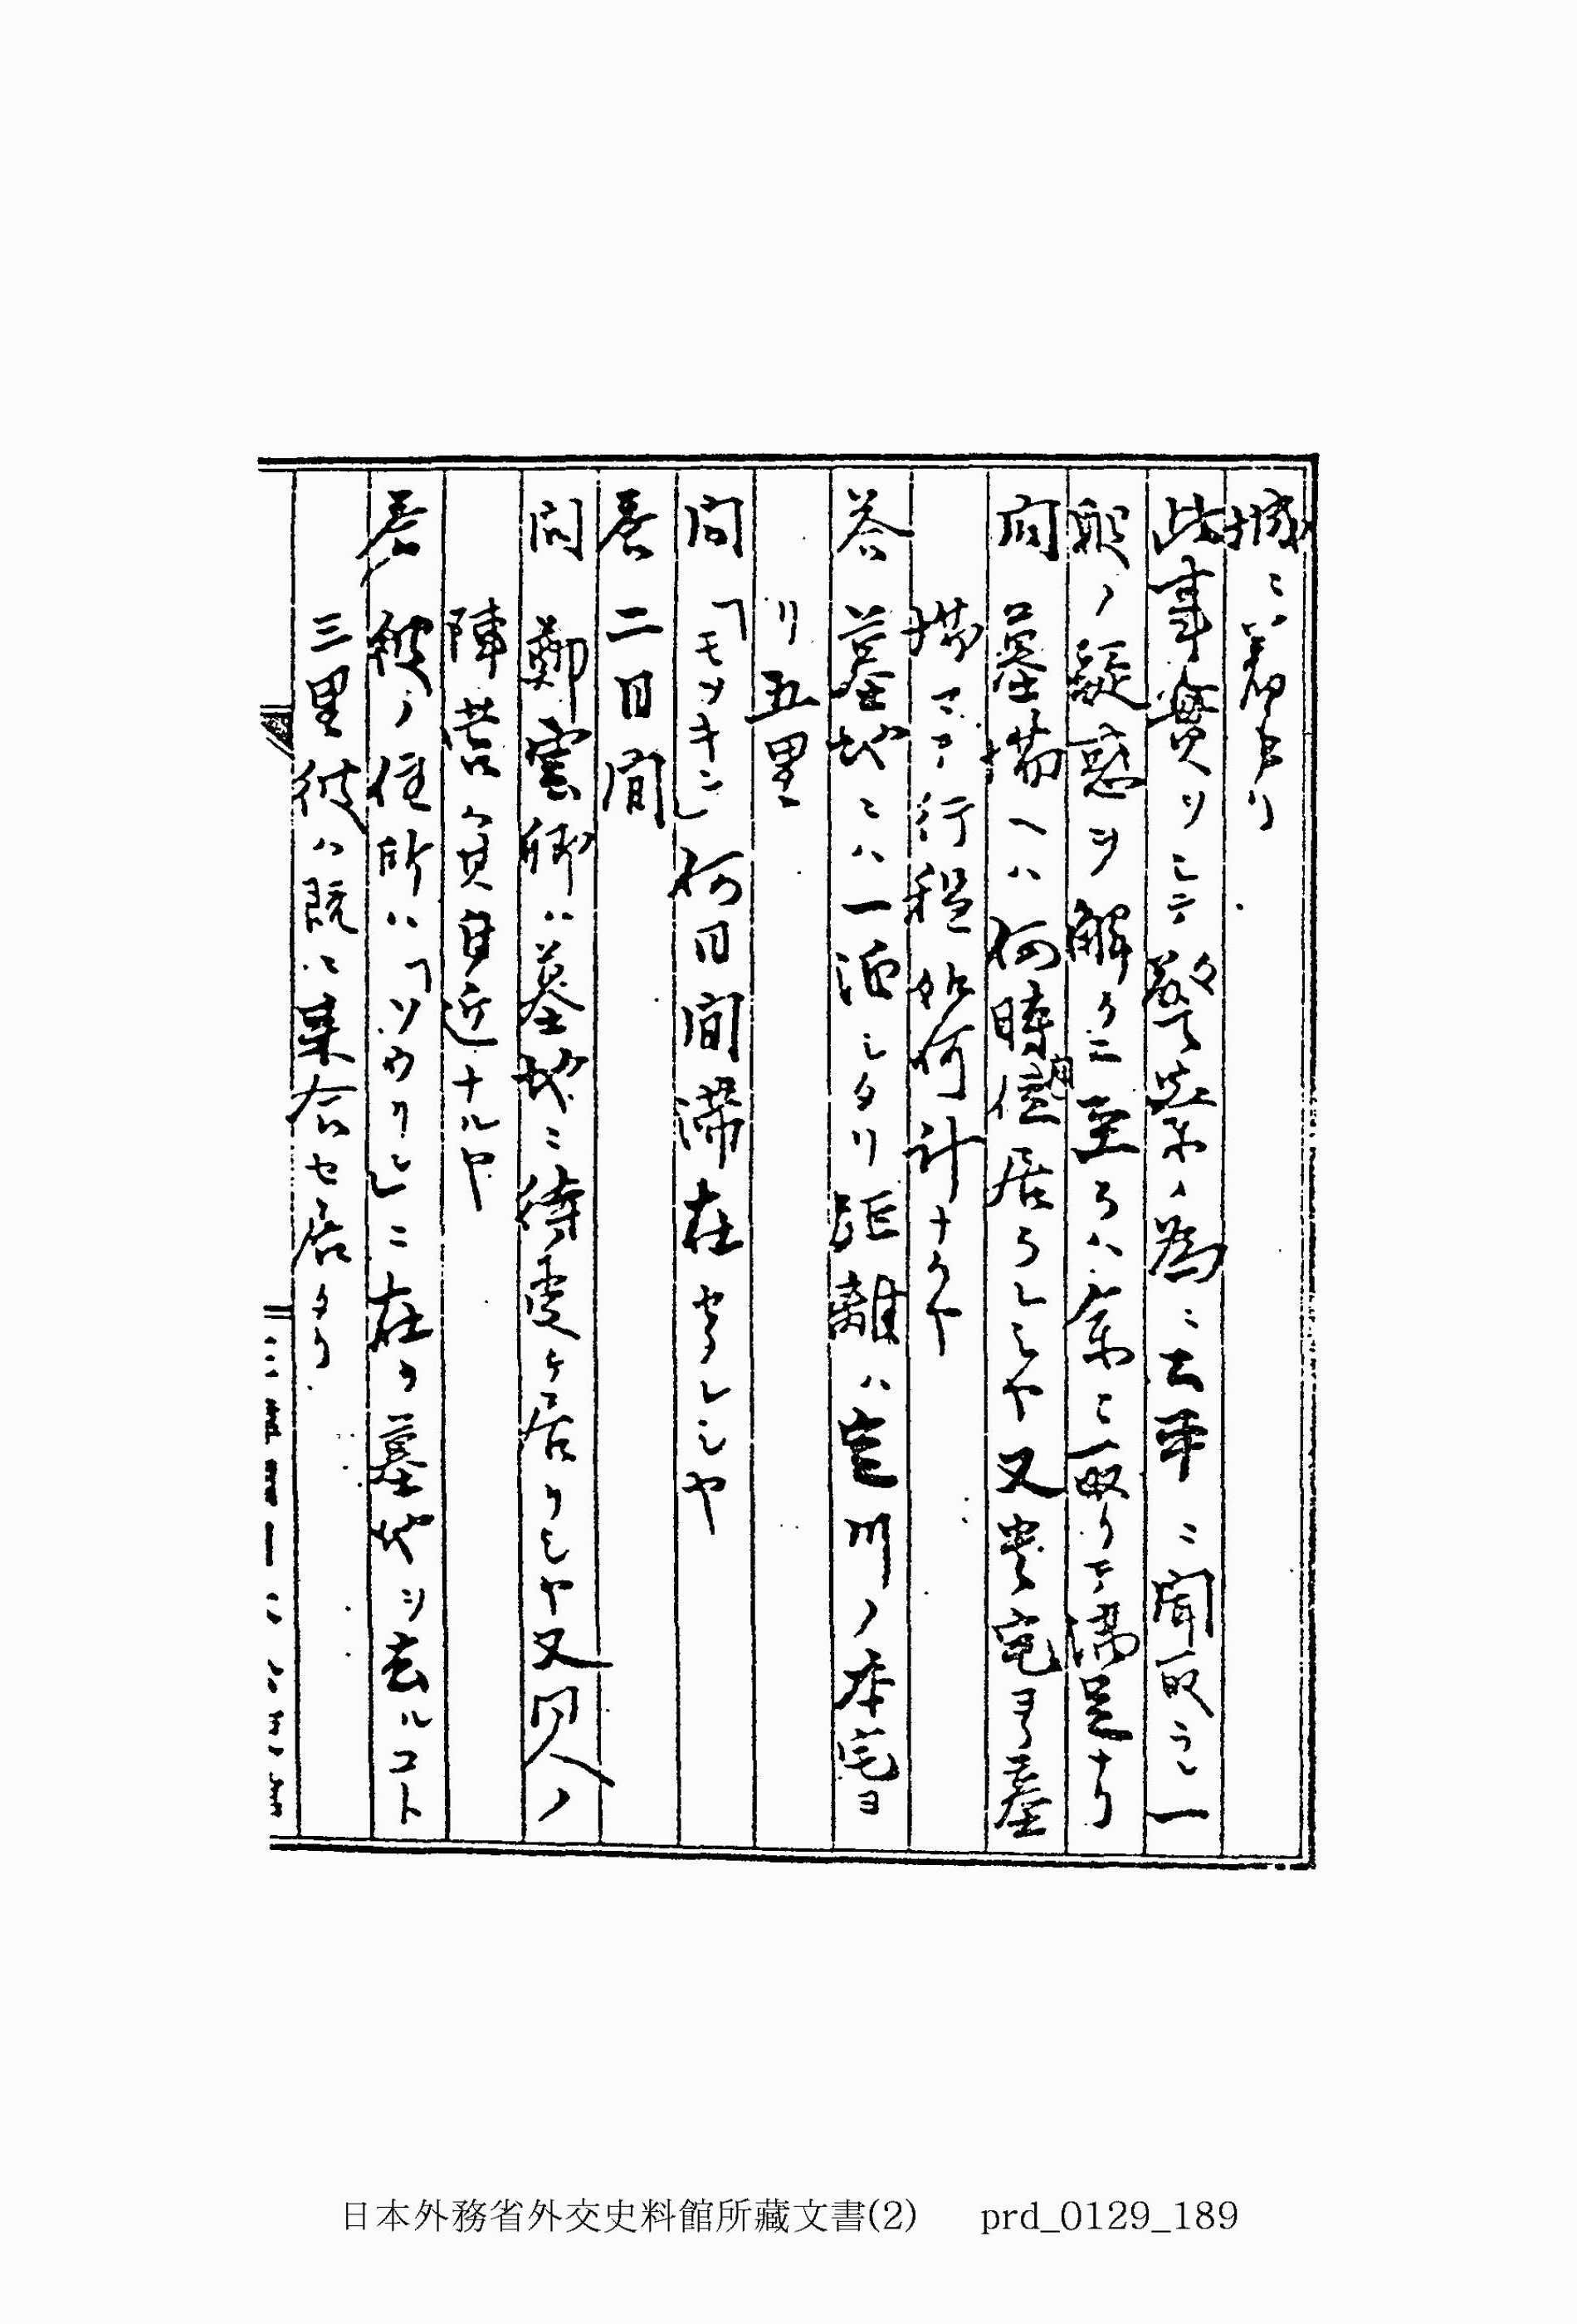 城ニハ着セリ
此事実ヲシテ警察ノ為ニ公平ニ聞取ラレ一
般ノ疑惑ヲ解クニ至ラハ余ニ取リテ満足ナリ
問 墓場ヘハ何時間居ラレシヤ又貴宅ヨリ墓
場マテ行程如何計ナルヤ
答 墓地ニハ一泊シタリ距離ハ宣川ノ本宅ヨ
リ五里
問 「モツキン」何日間滞在セラレシヤ
答 二日間
問 鄭雲卿ハ墓地ニ待受ケ居リシヤ又同人ノ
陣営ハ其附近ナルヤ
答 彼ノ住所ハ「ソウリ」ニ在リ墓地ヲ去ルコト
三里彼ハ既ニ来合セ居タリ
日本外務省外交史料館所藏文書(2) prd_0129_189